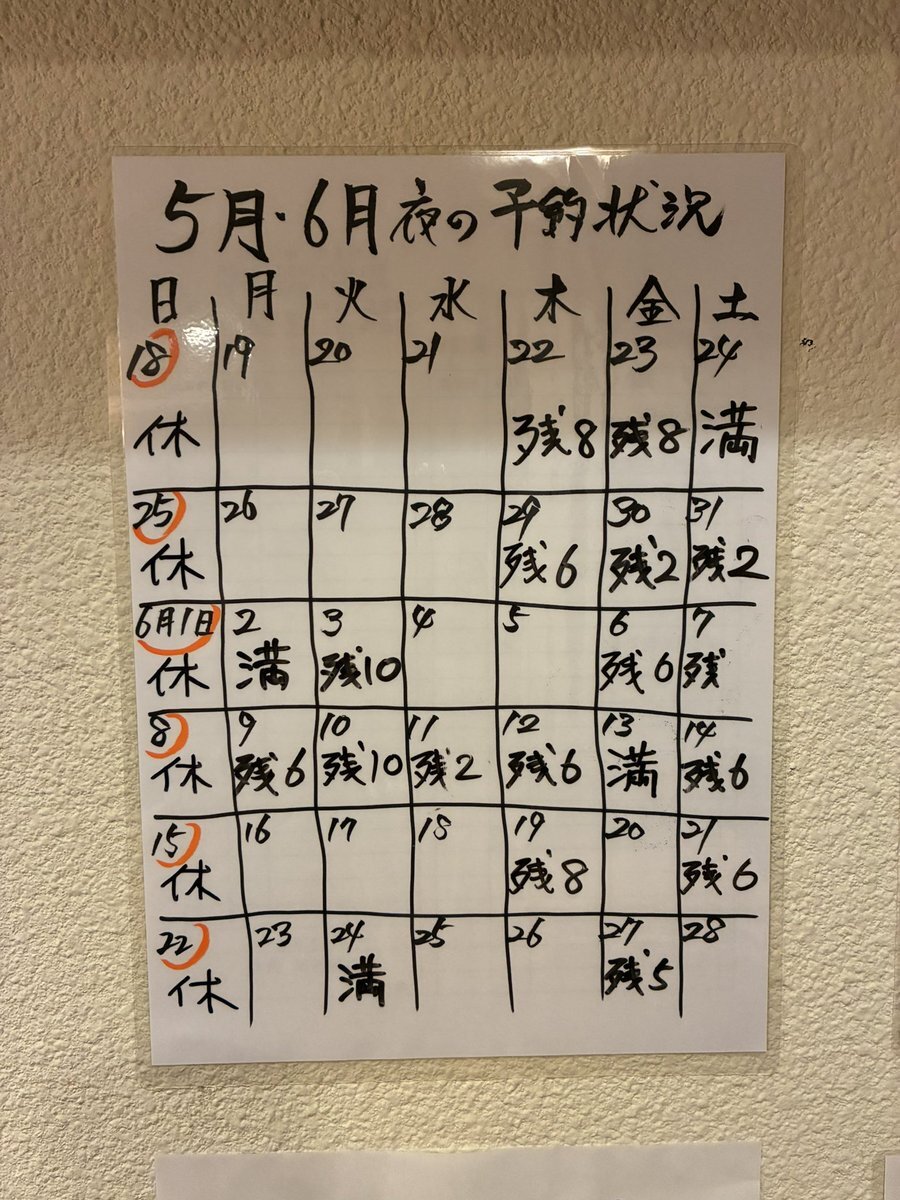 5月・6月夜の予約状況
日 月 火 水 木 金 土
18 19 20 21 22 23 24
休 残8 残8 満
25 26 27 28 29 30 31
休 残6 残2 残2
6月1日 2 3 4 5 6 7
休 満 残10 残6 残
8 9 10 11 12 13 14
休 残6 残10 残2 残6 満 残6
15 16 17 18 19 20 21
休 残8 残6
22 23 24 25 26 27 28
休 満 残5